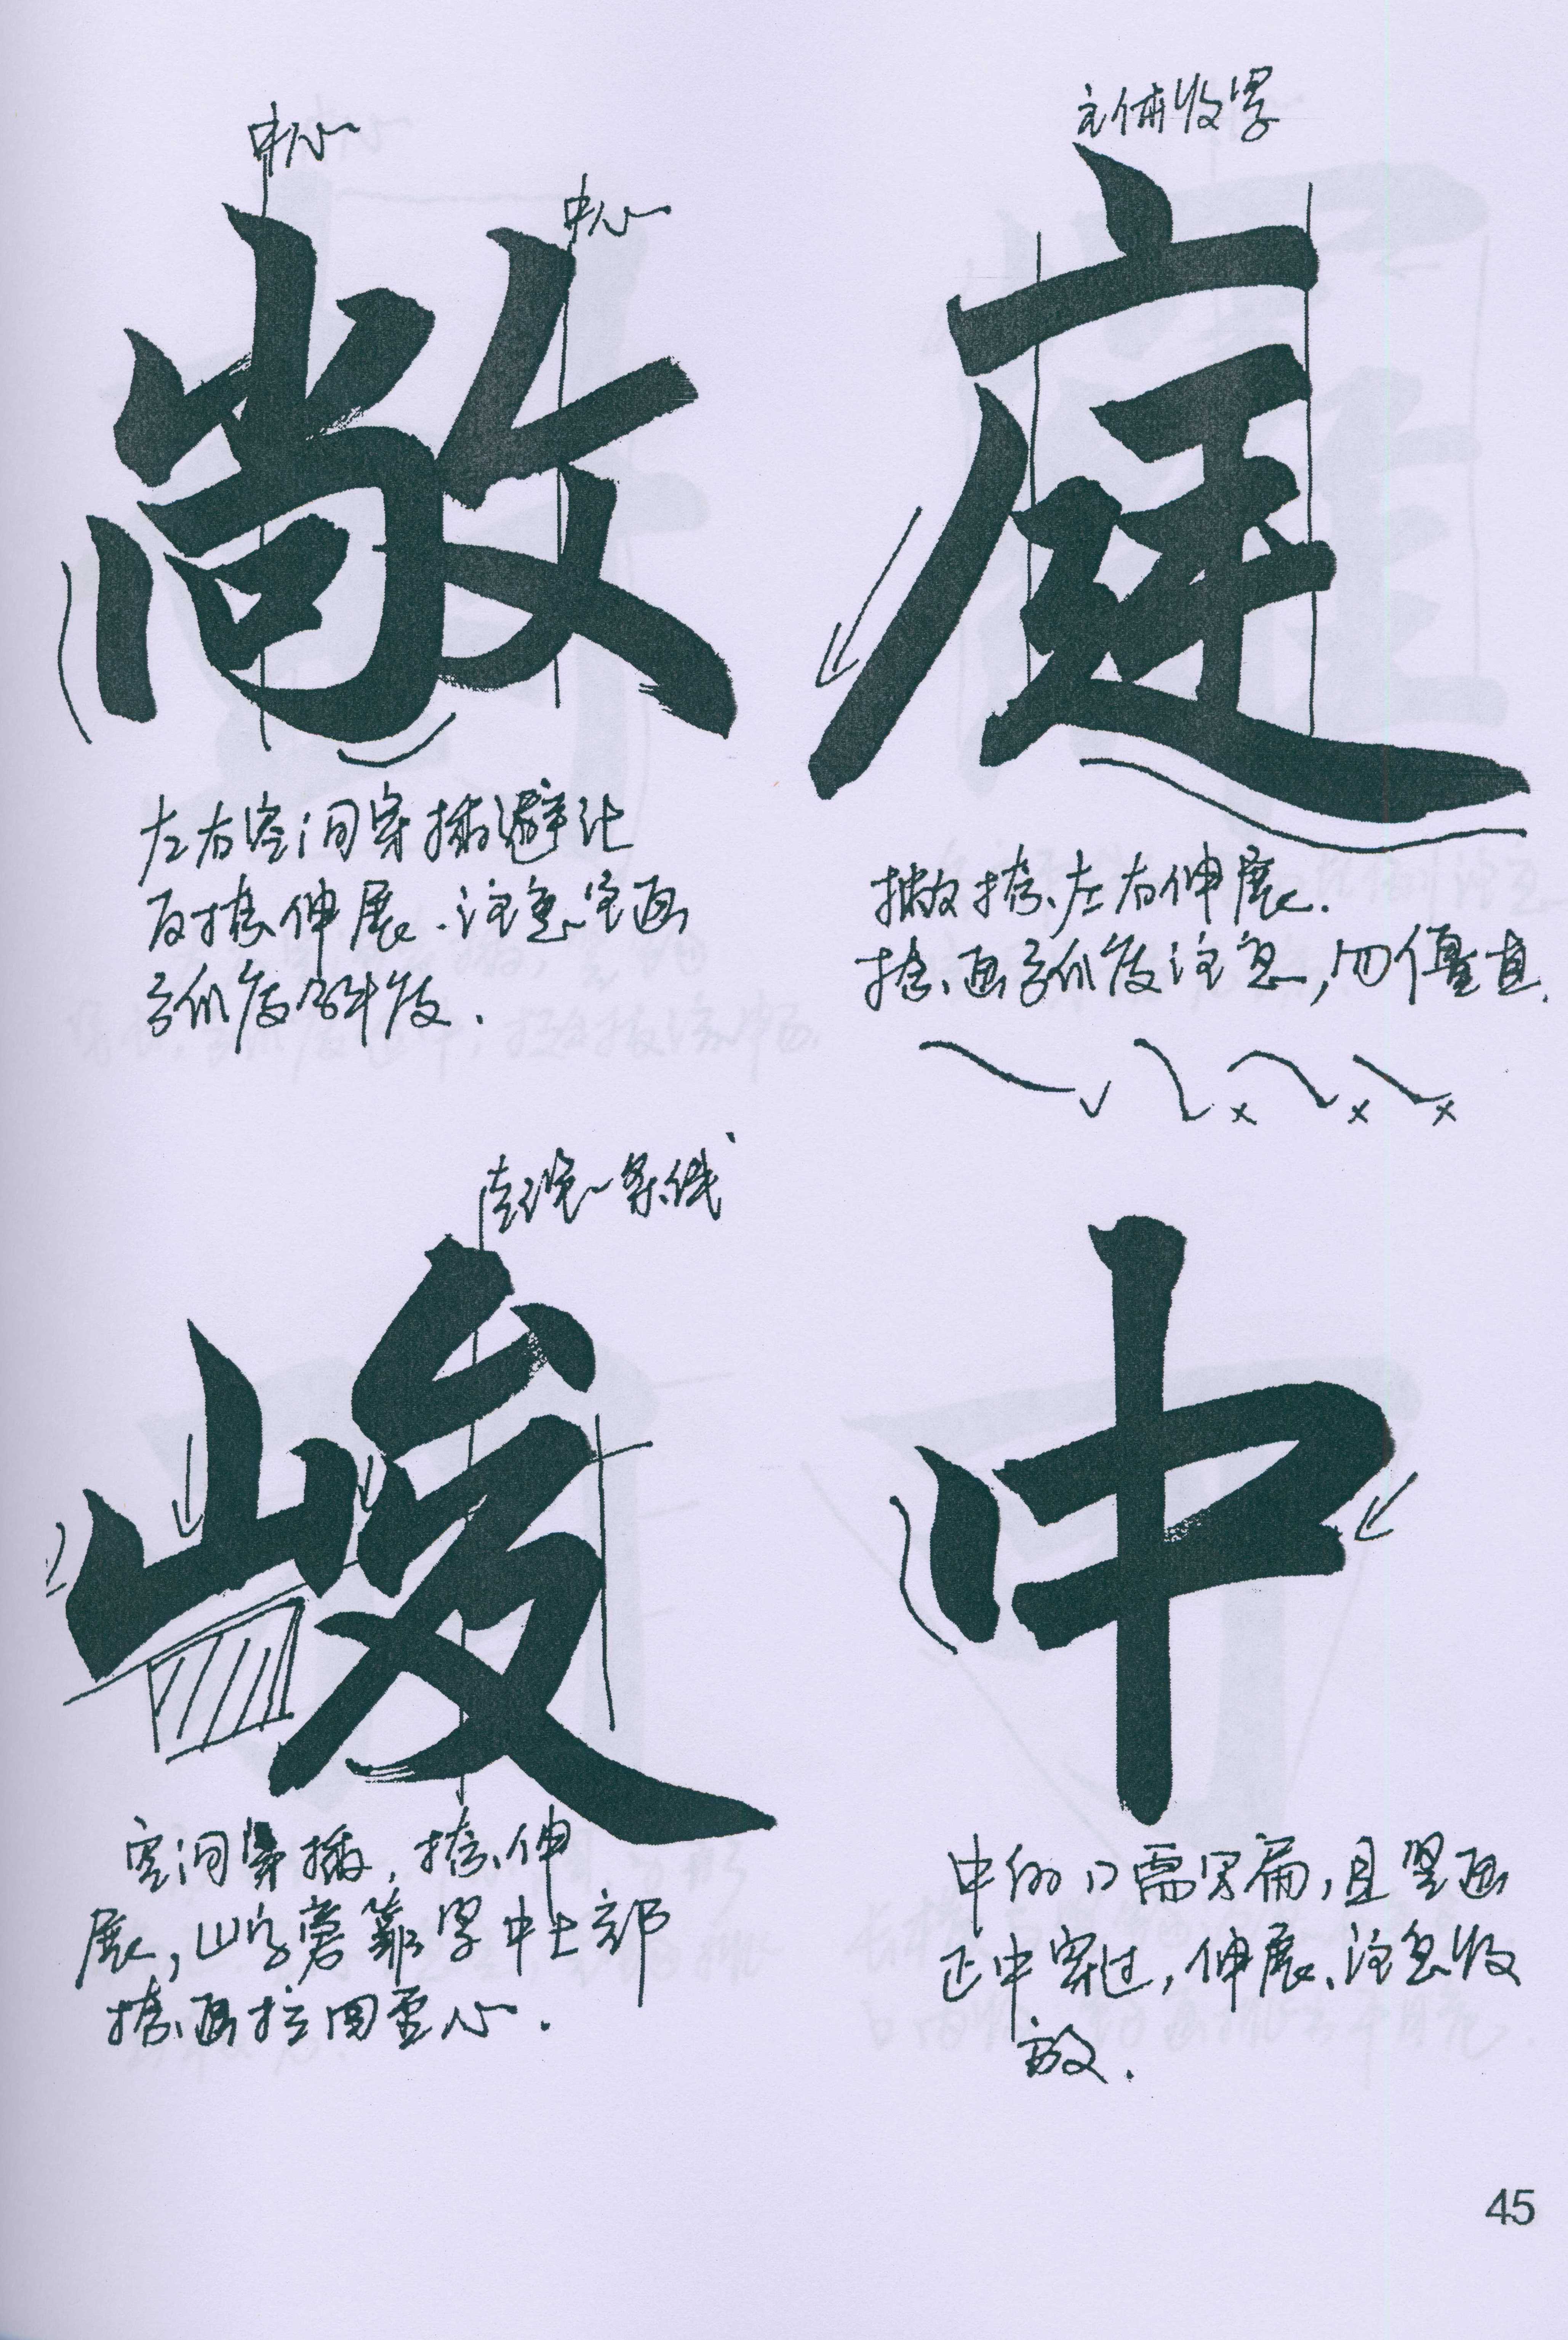 中心
中心
敞
左右空间穿插避让
反捺伸展.注意笔画
弧度斜度.
主体收紧
庭
撇捺左右伸展.
捺画弧度注意,勿僵直.
一条线
峻
空间穿插,捺伸
展,山字旁靠紧中上部
捺画拉回重心.
中
中的口需写扁,且竖画
正中穿过,伸展、注意收
放.
45